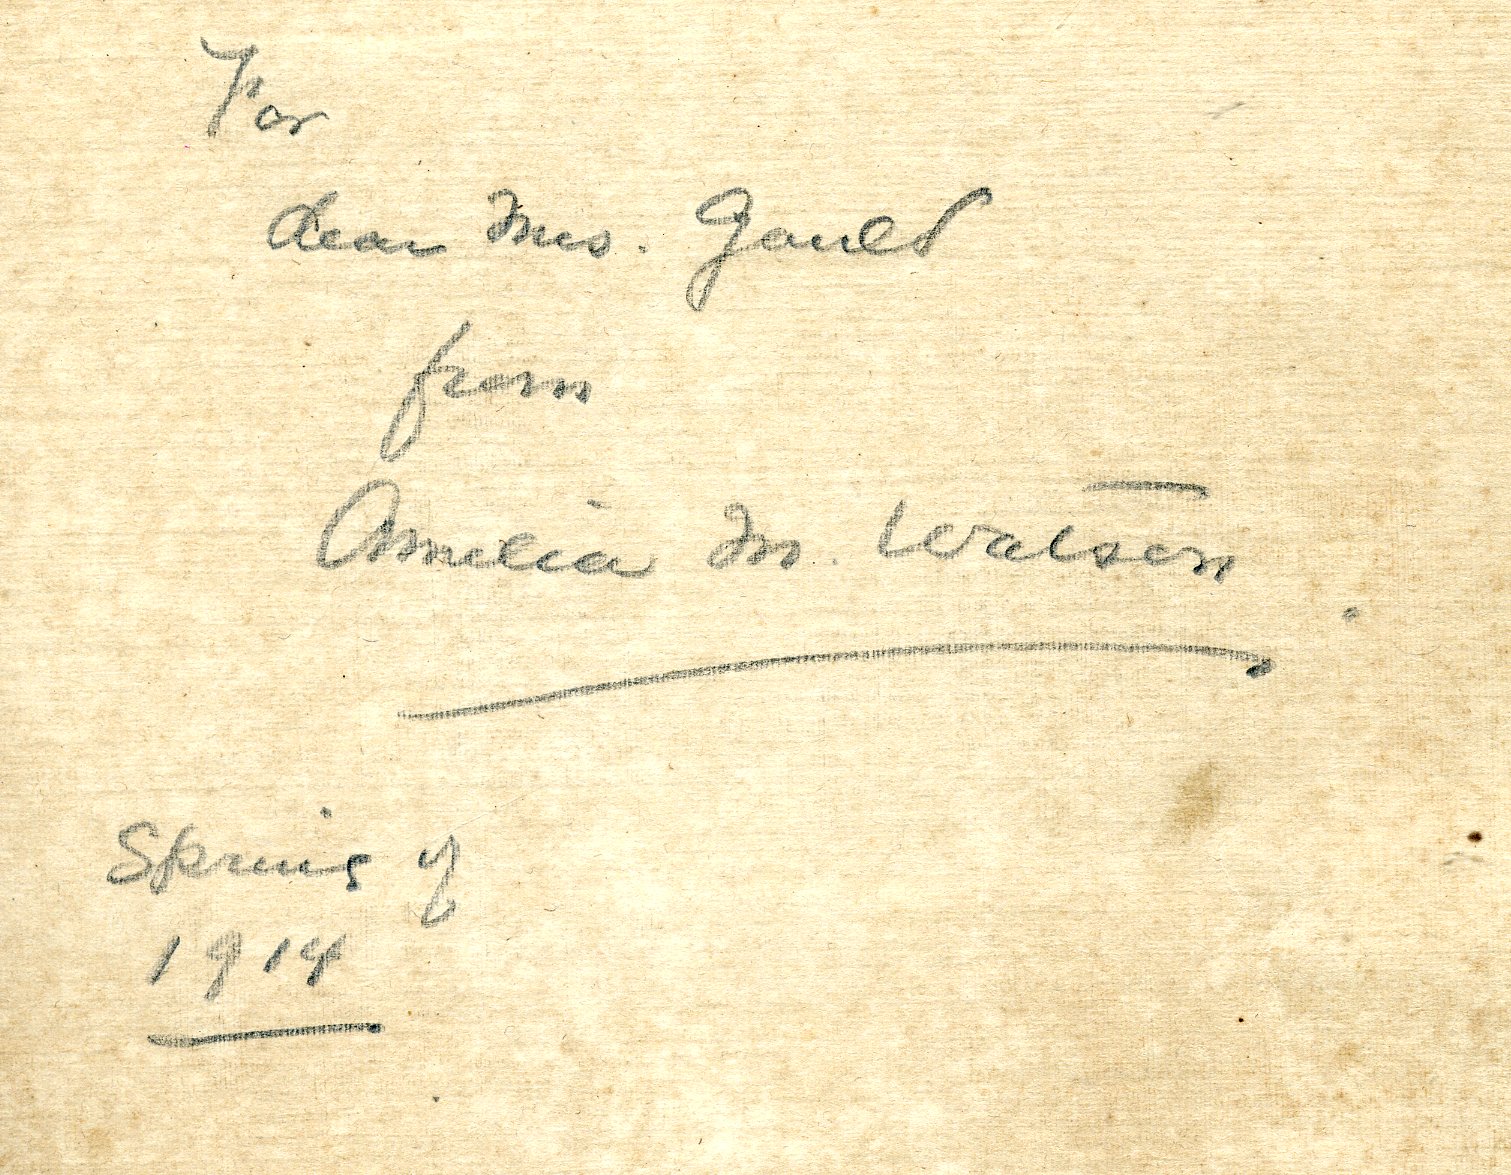 For
dear Mrs. Gould
from
Amelia M. Watson.
Spring of
1914